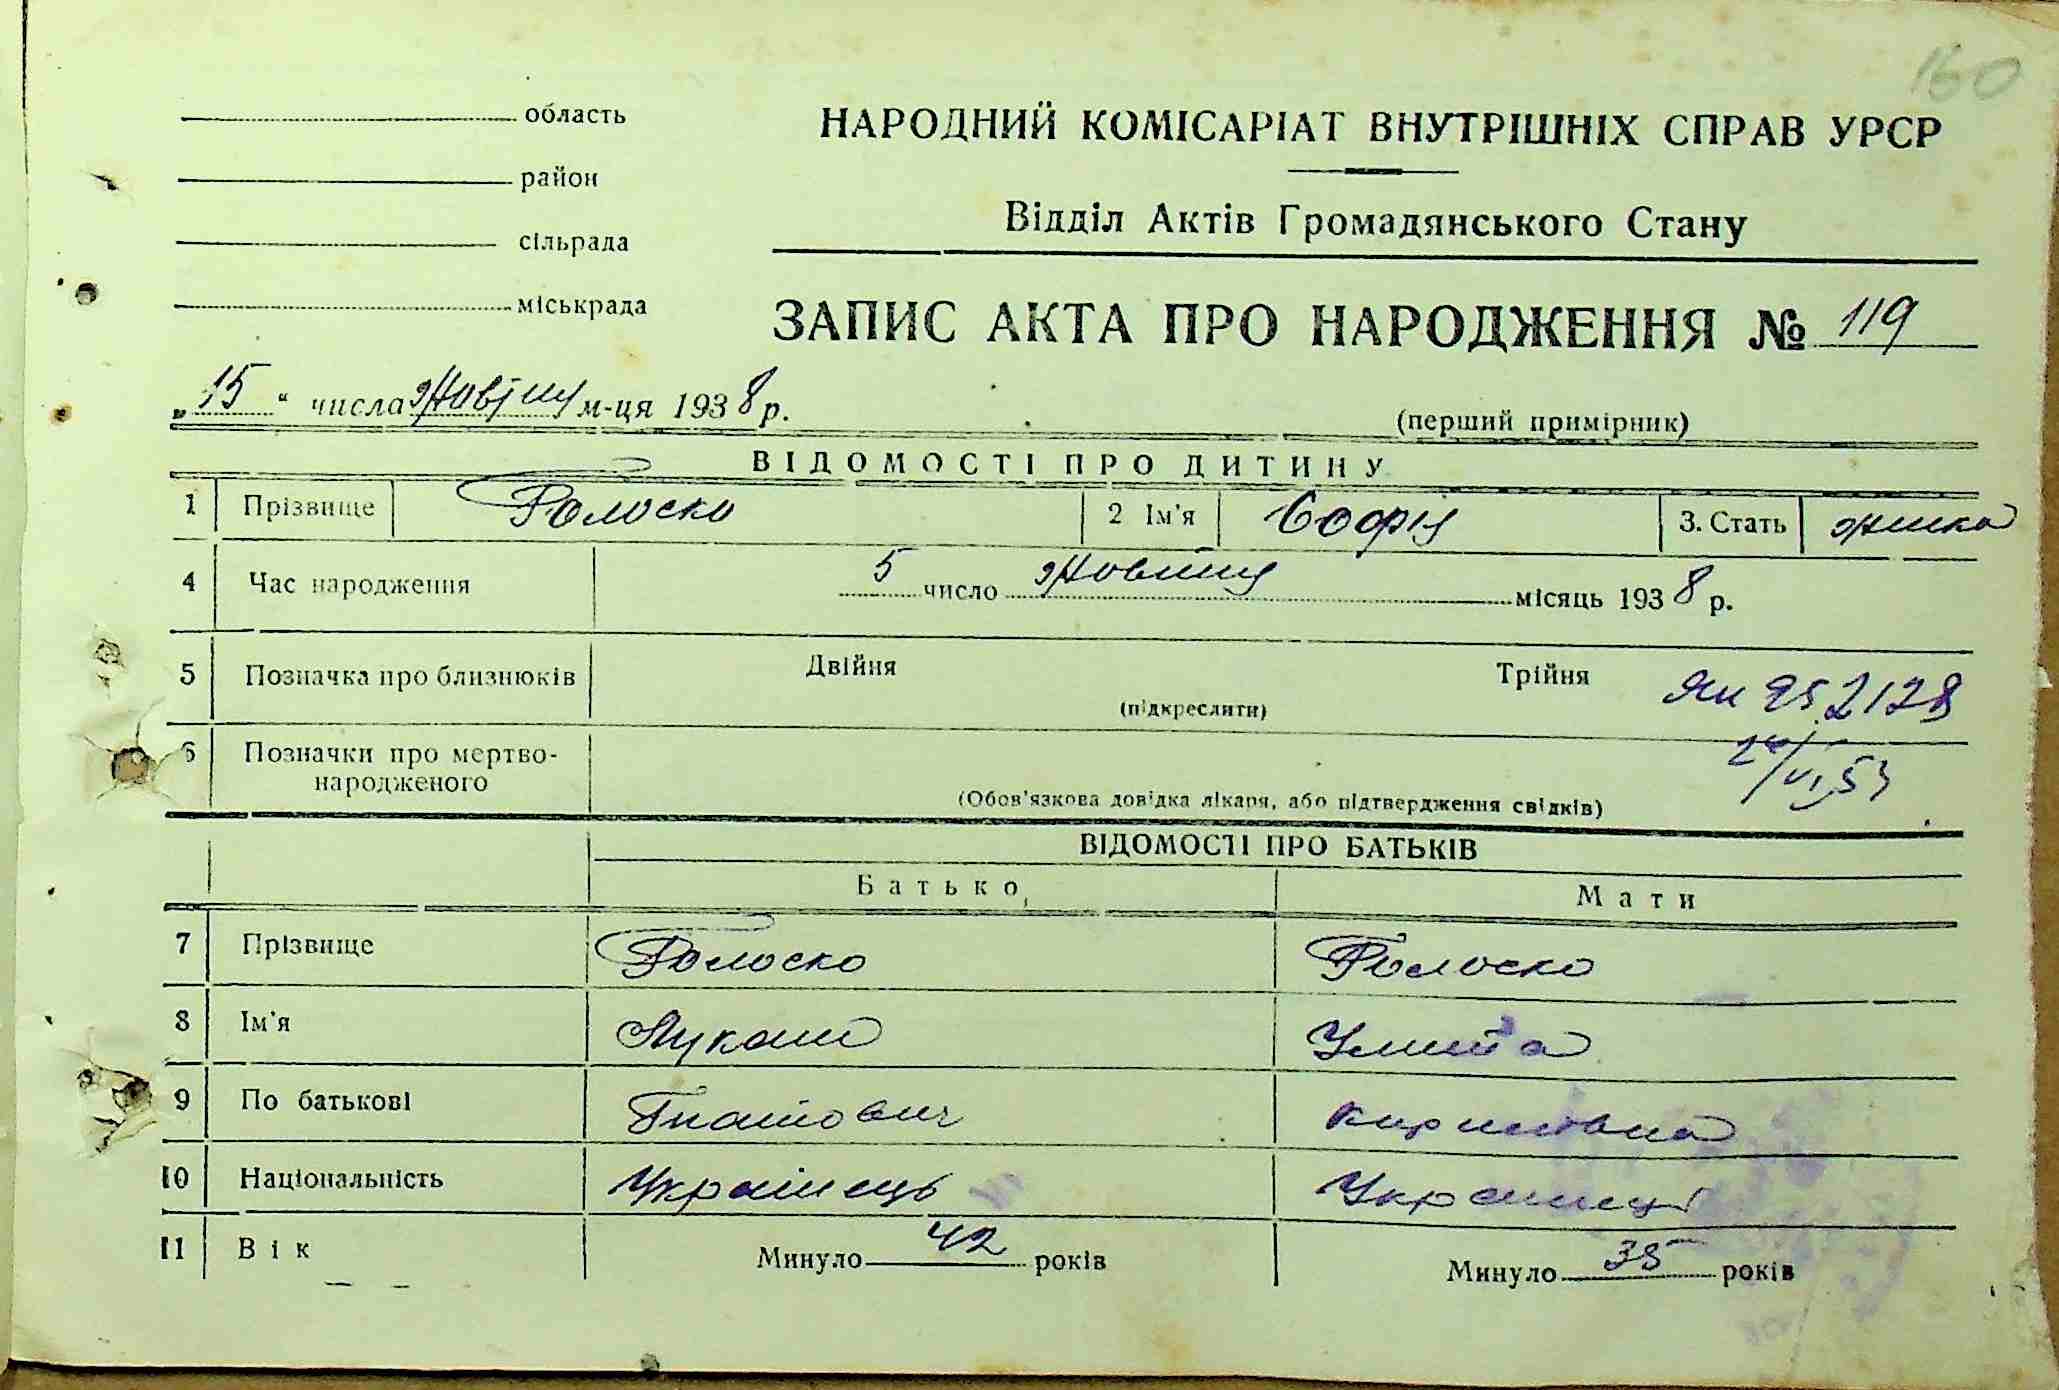 160
область
район
сільрада
міськрада
НАРОДНИЙ КОМІСАРІАТ ВНУТРІШНІХ СПРАВ УРСР
Відділ Актів Громадянського Стану
ЗАПИС АКТА ПРО НАРОДЖЕННЯ № 119
„15“ числа м-ця 1938 р.
(перший примірник)
ВІДОМОСТІ ПРО ДИТИНУ
1 Прізвище Голоско 2 Ім'я Софія 3. Стать
4 Час народження 5 число місяць 1938 р.
5 Позначка про близнюків Двійня Трійня
(підкреслити)
6 Позначки про мертво-
народженого
(Обов'язкова довідка лікаря, або підтвердження свідків)
ВІДОМОСТІ ПРО БАТЬКІВ
Батько Мати
7 Прізвище Голоско Голоско
8 Ім'я Лукаш
9 По батькові Гнатович
10 Національність Українець
11 Вік Минуло 42 років Минуло 35 років